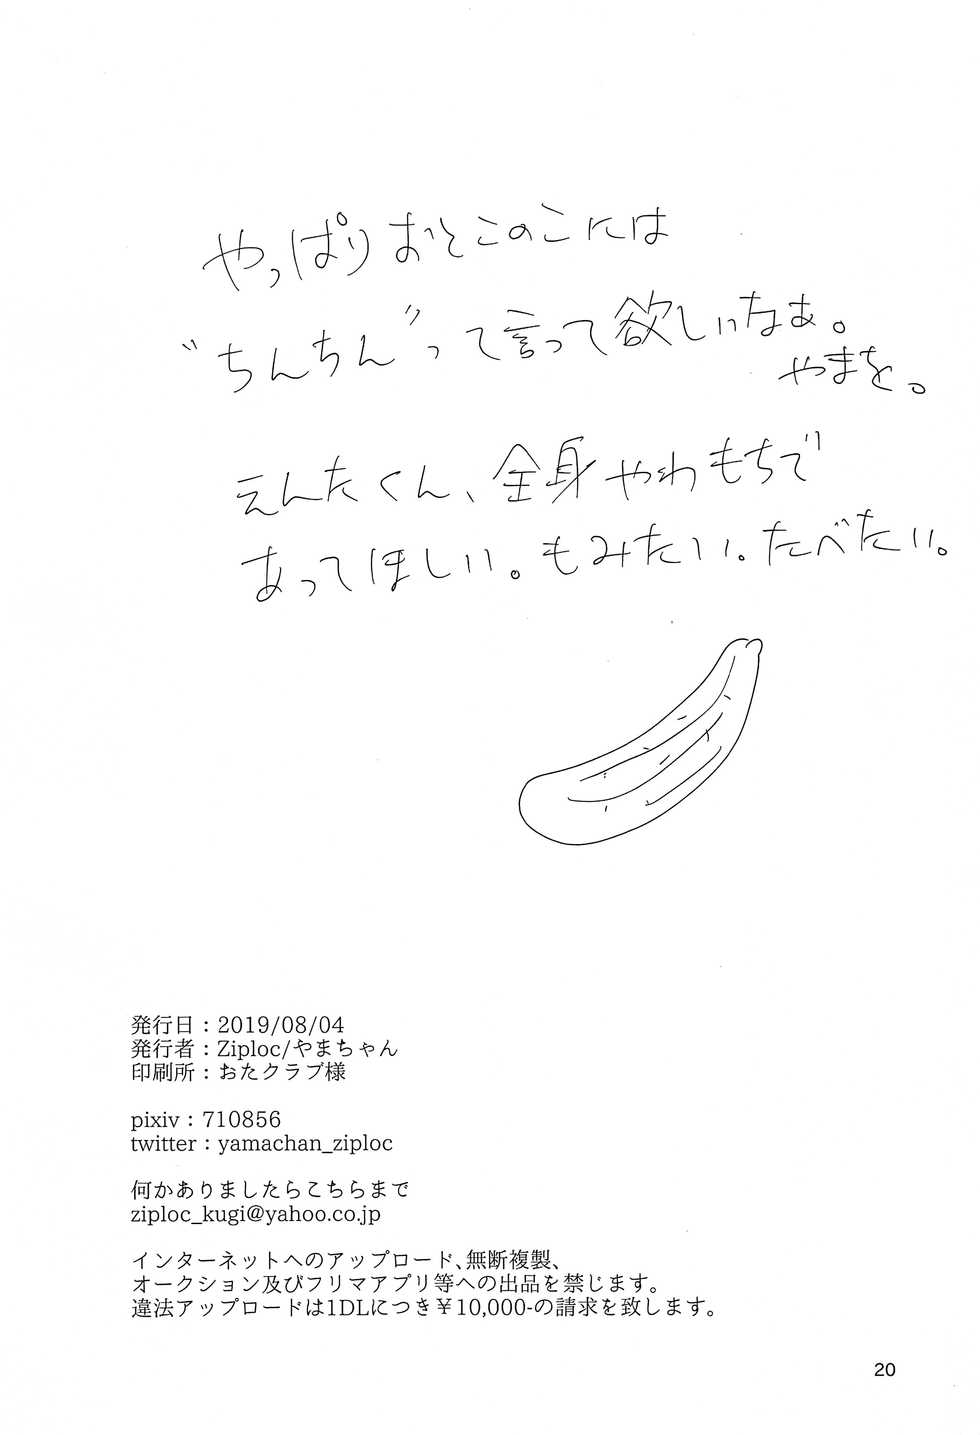 やっぱりおとこのこには
“ちんちん”って言って欲しいなぁ。
やまを。
えんたくん、全身やわもちで
あってほしい。もみたい。たべたい。
発行日：2019/08/04
発行者：Ziploc/やまちゃん
印刷所：おたクラブ様
pixiv：710856
twitter：yamachan_ziploc
何かありましたらこちらまで
ziploc_kugi@yahoo.co.jp
インターネットへのアップロード、無断複製、
オークション及びフリマアプリ等への出品を禁じます。
違法アップロードは1DLにつき￥10,000-の請求を致します。
20